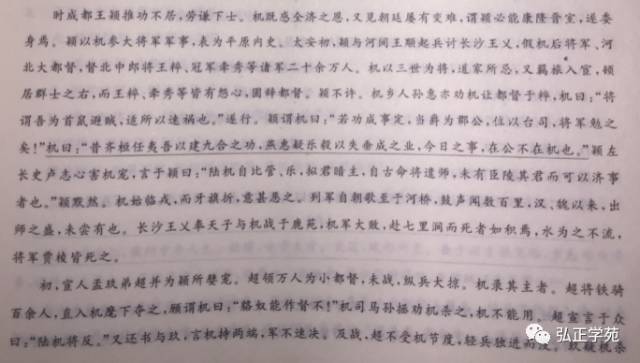 时成都王颖推功不居，劳谦下士。机既感全济之恩，又见朝廷屡有变难，谓颖必能康隆晋室，遂委
身焉。颖以机参大将军军事，表为平原内史。太安初，颖与河间王颙起兵讨长沙王乂，假机后将军、河
北大都督，督北中郎将王粹、冠军牵秀等诸军二十余万人。机以三世为将，道家所忌，又羁旅入宦，顿
居群士之右，而王粹、牵秀等皆有怨心，固辞都督。颖不许。机乡人孙惠亦劝机让都督于粹，机曰：“将
谓吾为首鼠避贼，适所以速祸也。”遂行。颖谓机曰：“若功成事定，当爵为郡公，位以台司，将军勉之
矣！”机曰：“昔齐桓任夷吾以建九合之功，燕惠疑乐毅以失垂成之业，今日之事，在公不在机也。”颖左
长史卢志心害机宠，言于颖曰：“陆机自比管、乐，拟君暗主，自古命将遣师，未有臣陵其君而可以济事
者也。”颖默然。机始临戎，而牙旗折，意甚恶之。列军自朝歌至于河桥，鼓声闻数百里，汉、魏以来，出
师之盛，未尝有也。长沙王乂奉天子与机战于鹿苑，机军大败，赴七里涧而死者如积焉，水为之不流，
将军贾棱皆死之。
初，宦人孟玖弟超并为颖所嬖宠。超领万人为小都督，未战，纵兵大掠。机录其主者。超将铁骑
百余人，直入机麾下夺之，顾谓机曰：“貉奴能作督不！”机司马孙拯劝机杀之，机不能用。超宣言于众
曰：“陆机将反。”又还书与玖，言机持两端，军不速决。及战，超不受机节度，轻兵独进而没。玖疑机杀
弘正学苑